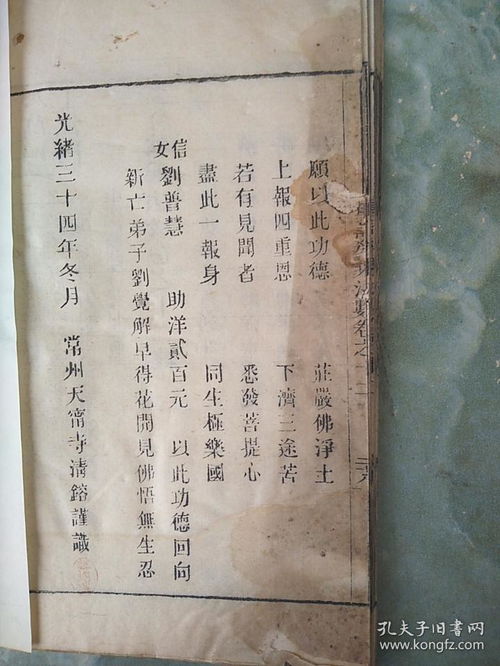 願以此功德　莊嚴佛淨土
上報四重恩　下濟三途苦
若有見聞者　悉發菩提心
盡此一報身　同生極樂國
信女劉普慧　助洋貳百元　以此功德回向
新亡弟子劉覺解早得花開見佛悟無生忍
光緒三十四年冬月　常州天甯寺清鎔謹識
孔夫子旧书网
www.kongfz.com